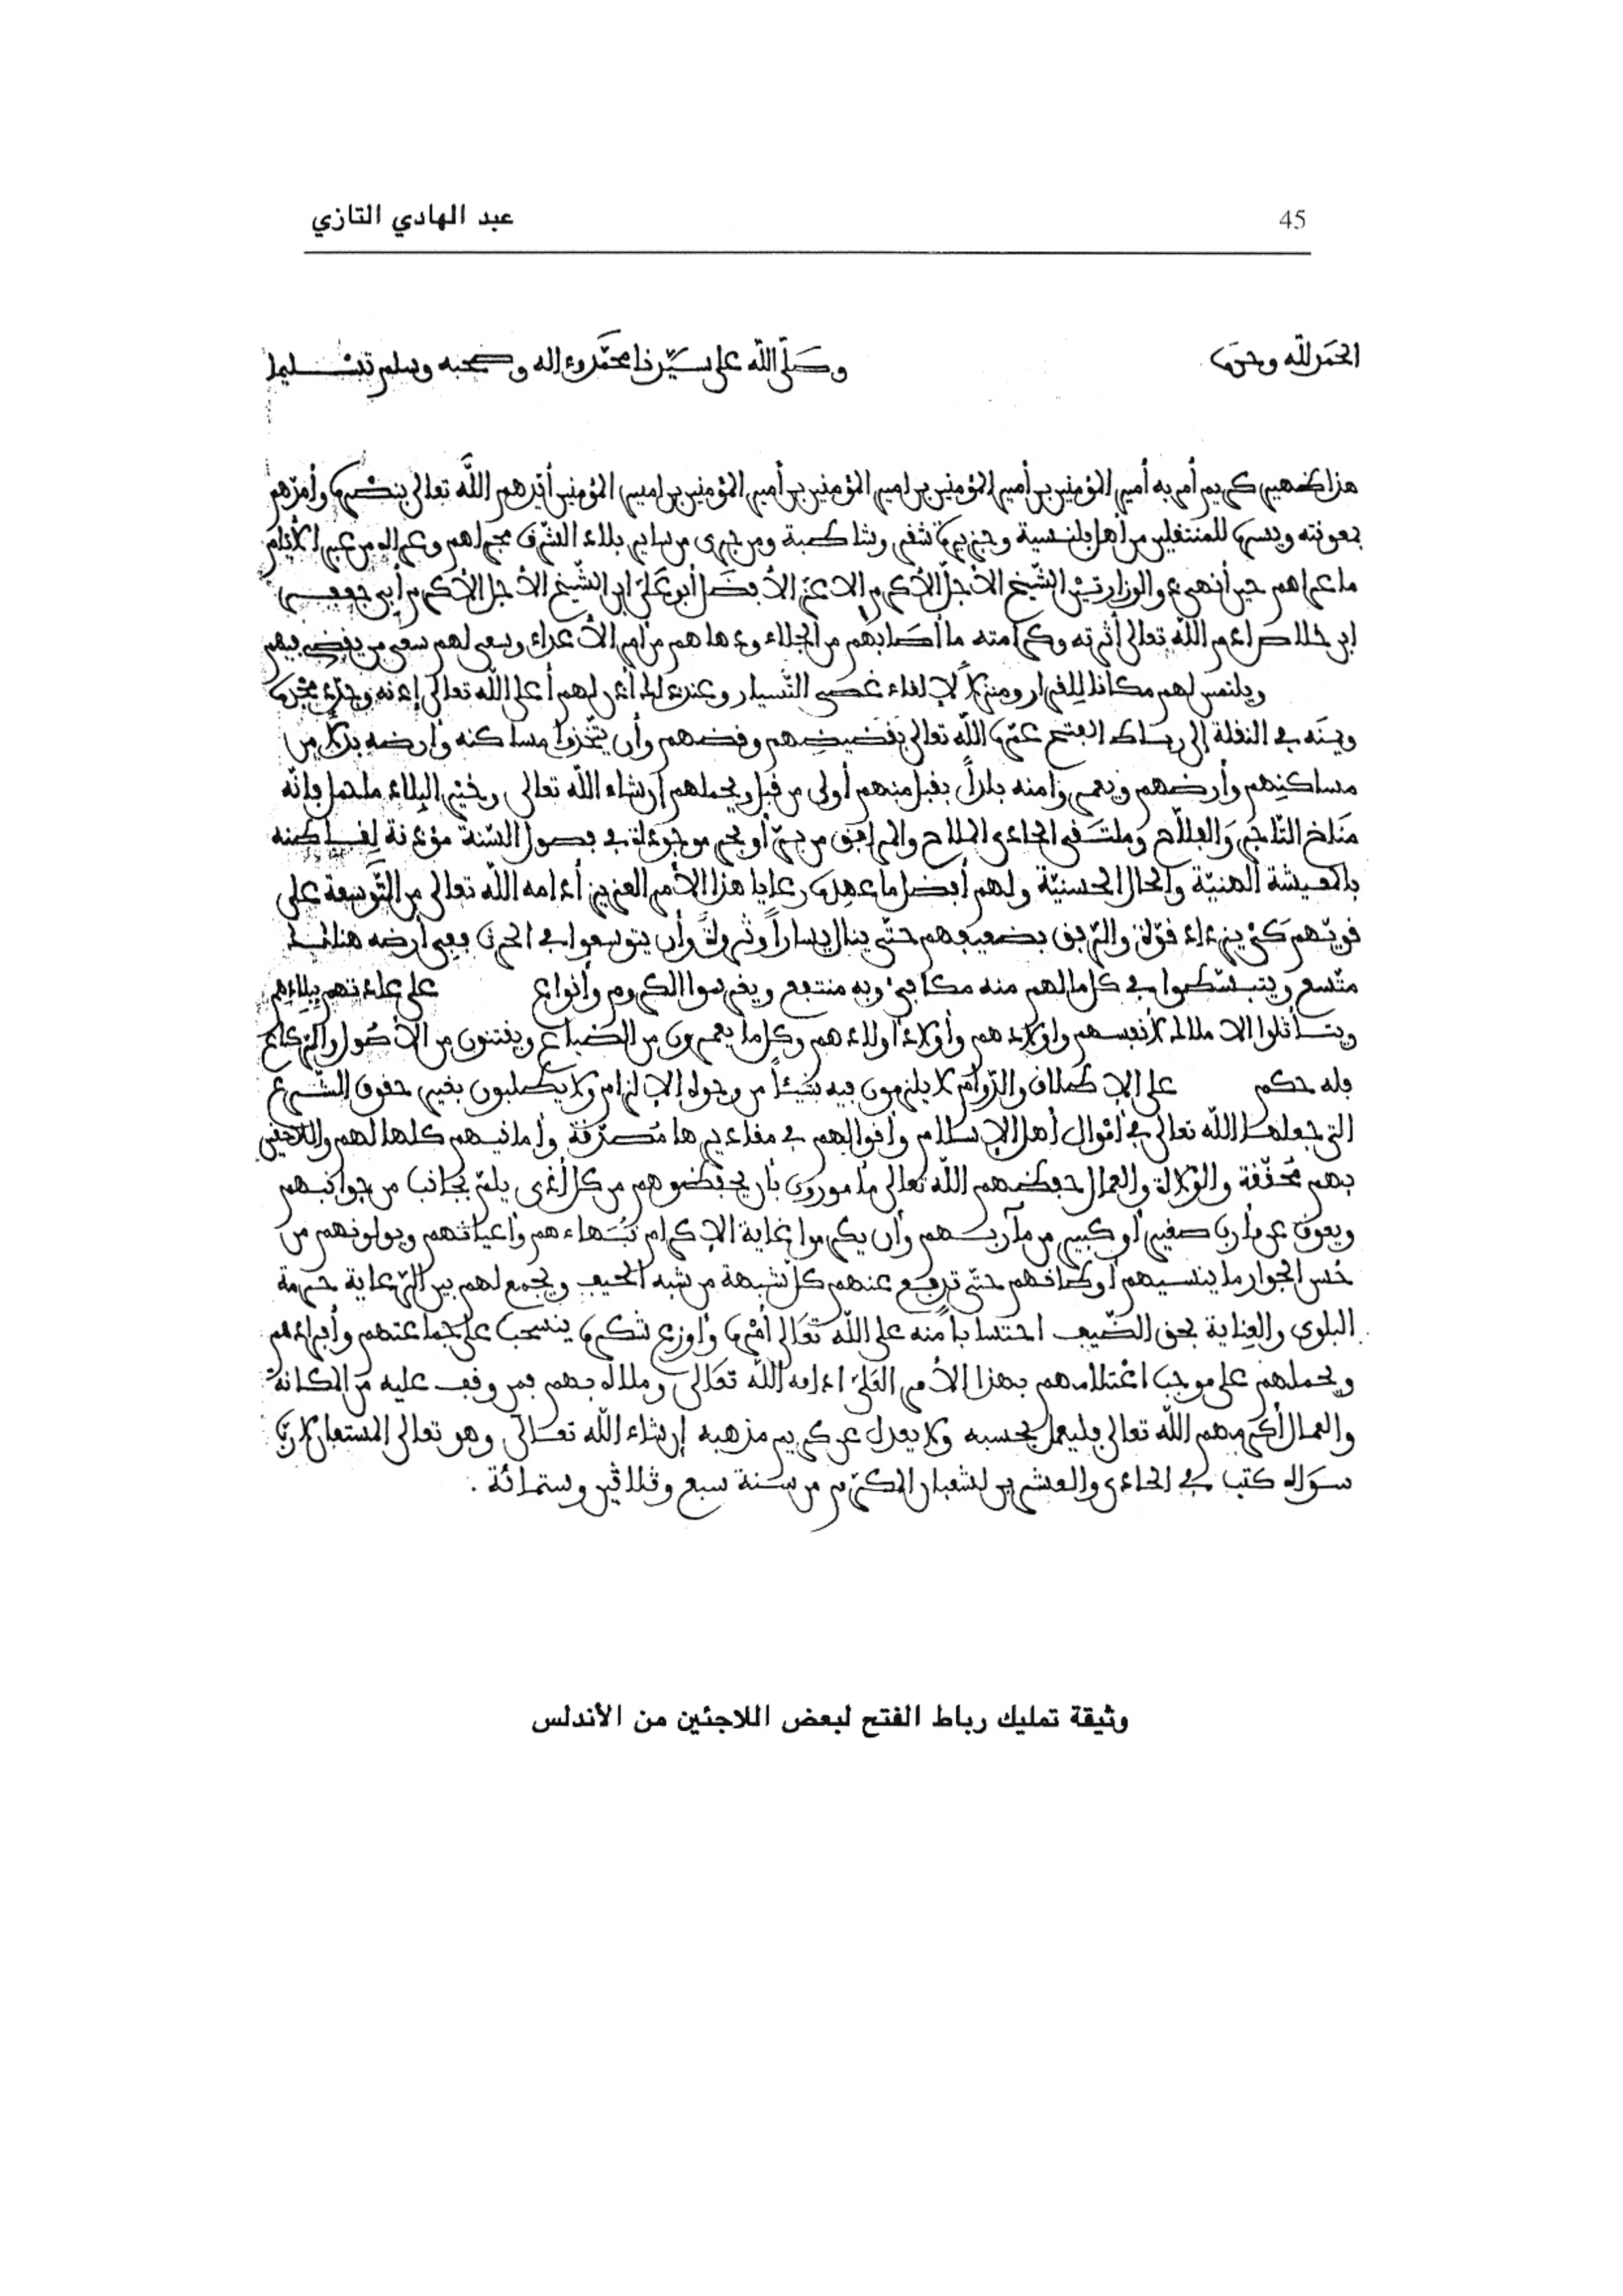 عبد الهادي التازي
45
الحمد لله وحده
وصلى الله على سيدنا محمد وءاله وصحبه وسلم تسليما
هذا ظهير كريم أمر به أمير المؤمنين بن أمير المؤمنين بن أمير المؤمنين بن أمير المؤمنين بن أمير المؤمنين أيدهم الله تعالى بنصره وأمدهم
بمعونته ويسره للمنتقلين من أهل بلنسية وجزيرة شقر وشاطبة ومن جرى من سائر بلاد الشرق مجراهم وعراه من عبر الأيام
ما عراهم حين أنهى ذو الوزارتين الشيخ الأجل الأكرم الاعز الأفضل أبو علي ابن الشيخ الأجل الأكرم أبي جعفر
ابن خلاص ادام الله تعالى أثرته وكرامته ما أصابهم من الجلاء ودهاهم من أمر الأعداء وسعى لهم سعي من يفضي بهم
ويلتمس لهم مكانا للقرار ومنزلا لإلقاء عصى التسيار وعند ذلك أذن لهم أعلى الله تعالى إذنه وجدد
ويمنه في النقلة إلى رباط الفتح عمره الله تعالى بقضيضهم وقضهم وأن يتخذوا مساكنه وأرضه بدلا من
مساكنهم وأرضهم ويعمروا منه بلدا يقبل منهم أولى من قبل ويحملهم إن شاء الله تعالى وخير البلاد ما حمل فإنه
مناخ التاجر والفلاح وملتقى الحادي الملاح والمرافق من بر أو بحر موجودة في فصول السنة مؤذنة لقاطنه
بالمعيشة الهنية والحال الحسنية ولهم أفضل ما عهده رعايا هذا الأمر العزيز أدامه الله تعالى من التوسعة على
قويهم كي يزداد قوة والرفق بضعيفهم حتى ينال يسارا وثروة وأن يتوسعوا في الحرث ففي أرضه هنالك
متسع ويتبسطوا في كل مالهم منه وبه منتفع ويغرسوا الكروم وأنواع على عادتهم ببلادهم
ويتأثلوا الاملاك لأنفسهم وأولادهم وأولاد أولادهم وكل ما يعمرون من الضياع ويقتنون من الأصول والرباع
فله حكم على الإطلاق والدوام لا يلزمون فيه شيئا من وجوه الإلزام ولا يطلبون بغير حقوق الشرع
التي جعلها الله تعالى في أموال أهل الإسلام وأقوالهم في مقاديرها مصدقة وأمانيهم كلها لهم واللاحقين
بهم محققة والولاة والعمال حفظهم الله تعالى مأمورون بأن يحفظوهم من كل أذى يلم بجانب من جوانبهم
ويعوق عن مأرب صغير أو كبير من مآربهم وأن يكرموا غاية الإكرام نبهاءهم وأعيانهم ويولونهم من
حسن الجوار ما ينسيهم أوطانهم حتى ترفع عنهم كل شبهة من شبه الحيف ويجمع لهم بين الرعاية حرمة
البلوى والعناية بحق الضيف احتسابا منه على الله تعالى أمره وأوزع شكره ينسحب على جماعتهم وأفرادهم
ويحملهم على موجب اعتلاقهم بهذا الأمر العلي ادامه الله تعالى وملاكه بهم فمن وقف عليه من
والعمال أكرمهم الله تعالى فليعمل بحسبه ولا يعدل عن كريم مذهبه إن شاء الله تعالى وهو تعالى المستعان لا رب
سواه كتب في الحادي والعشرين لشعبان المكرم من سنة سبع وثلاثين وستمائة .
وثيقة تمليك رباط الفتح لبعض اللاجئين من الأندلس